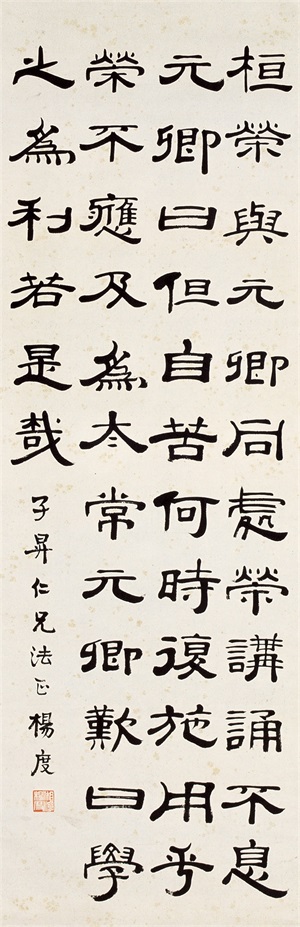 桓榮與元卿同處榮講誦不息
元卿曰但自苦何時復施用乎
榮不應及為太常元卿歎曰學
之為利若是哉
子昇仁兄法正 楊度